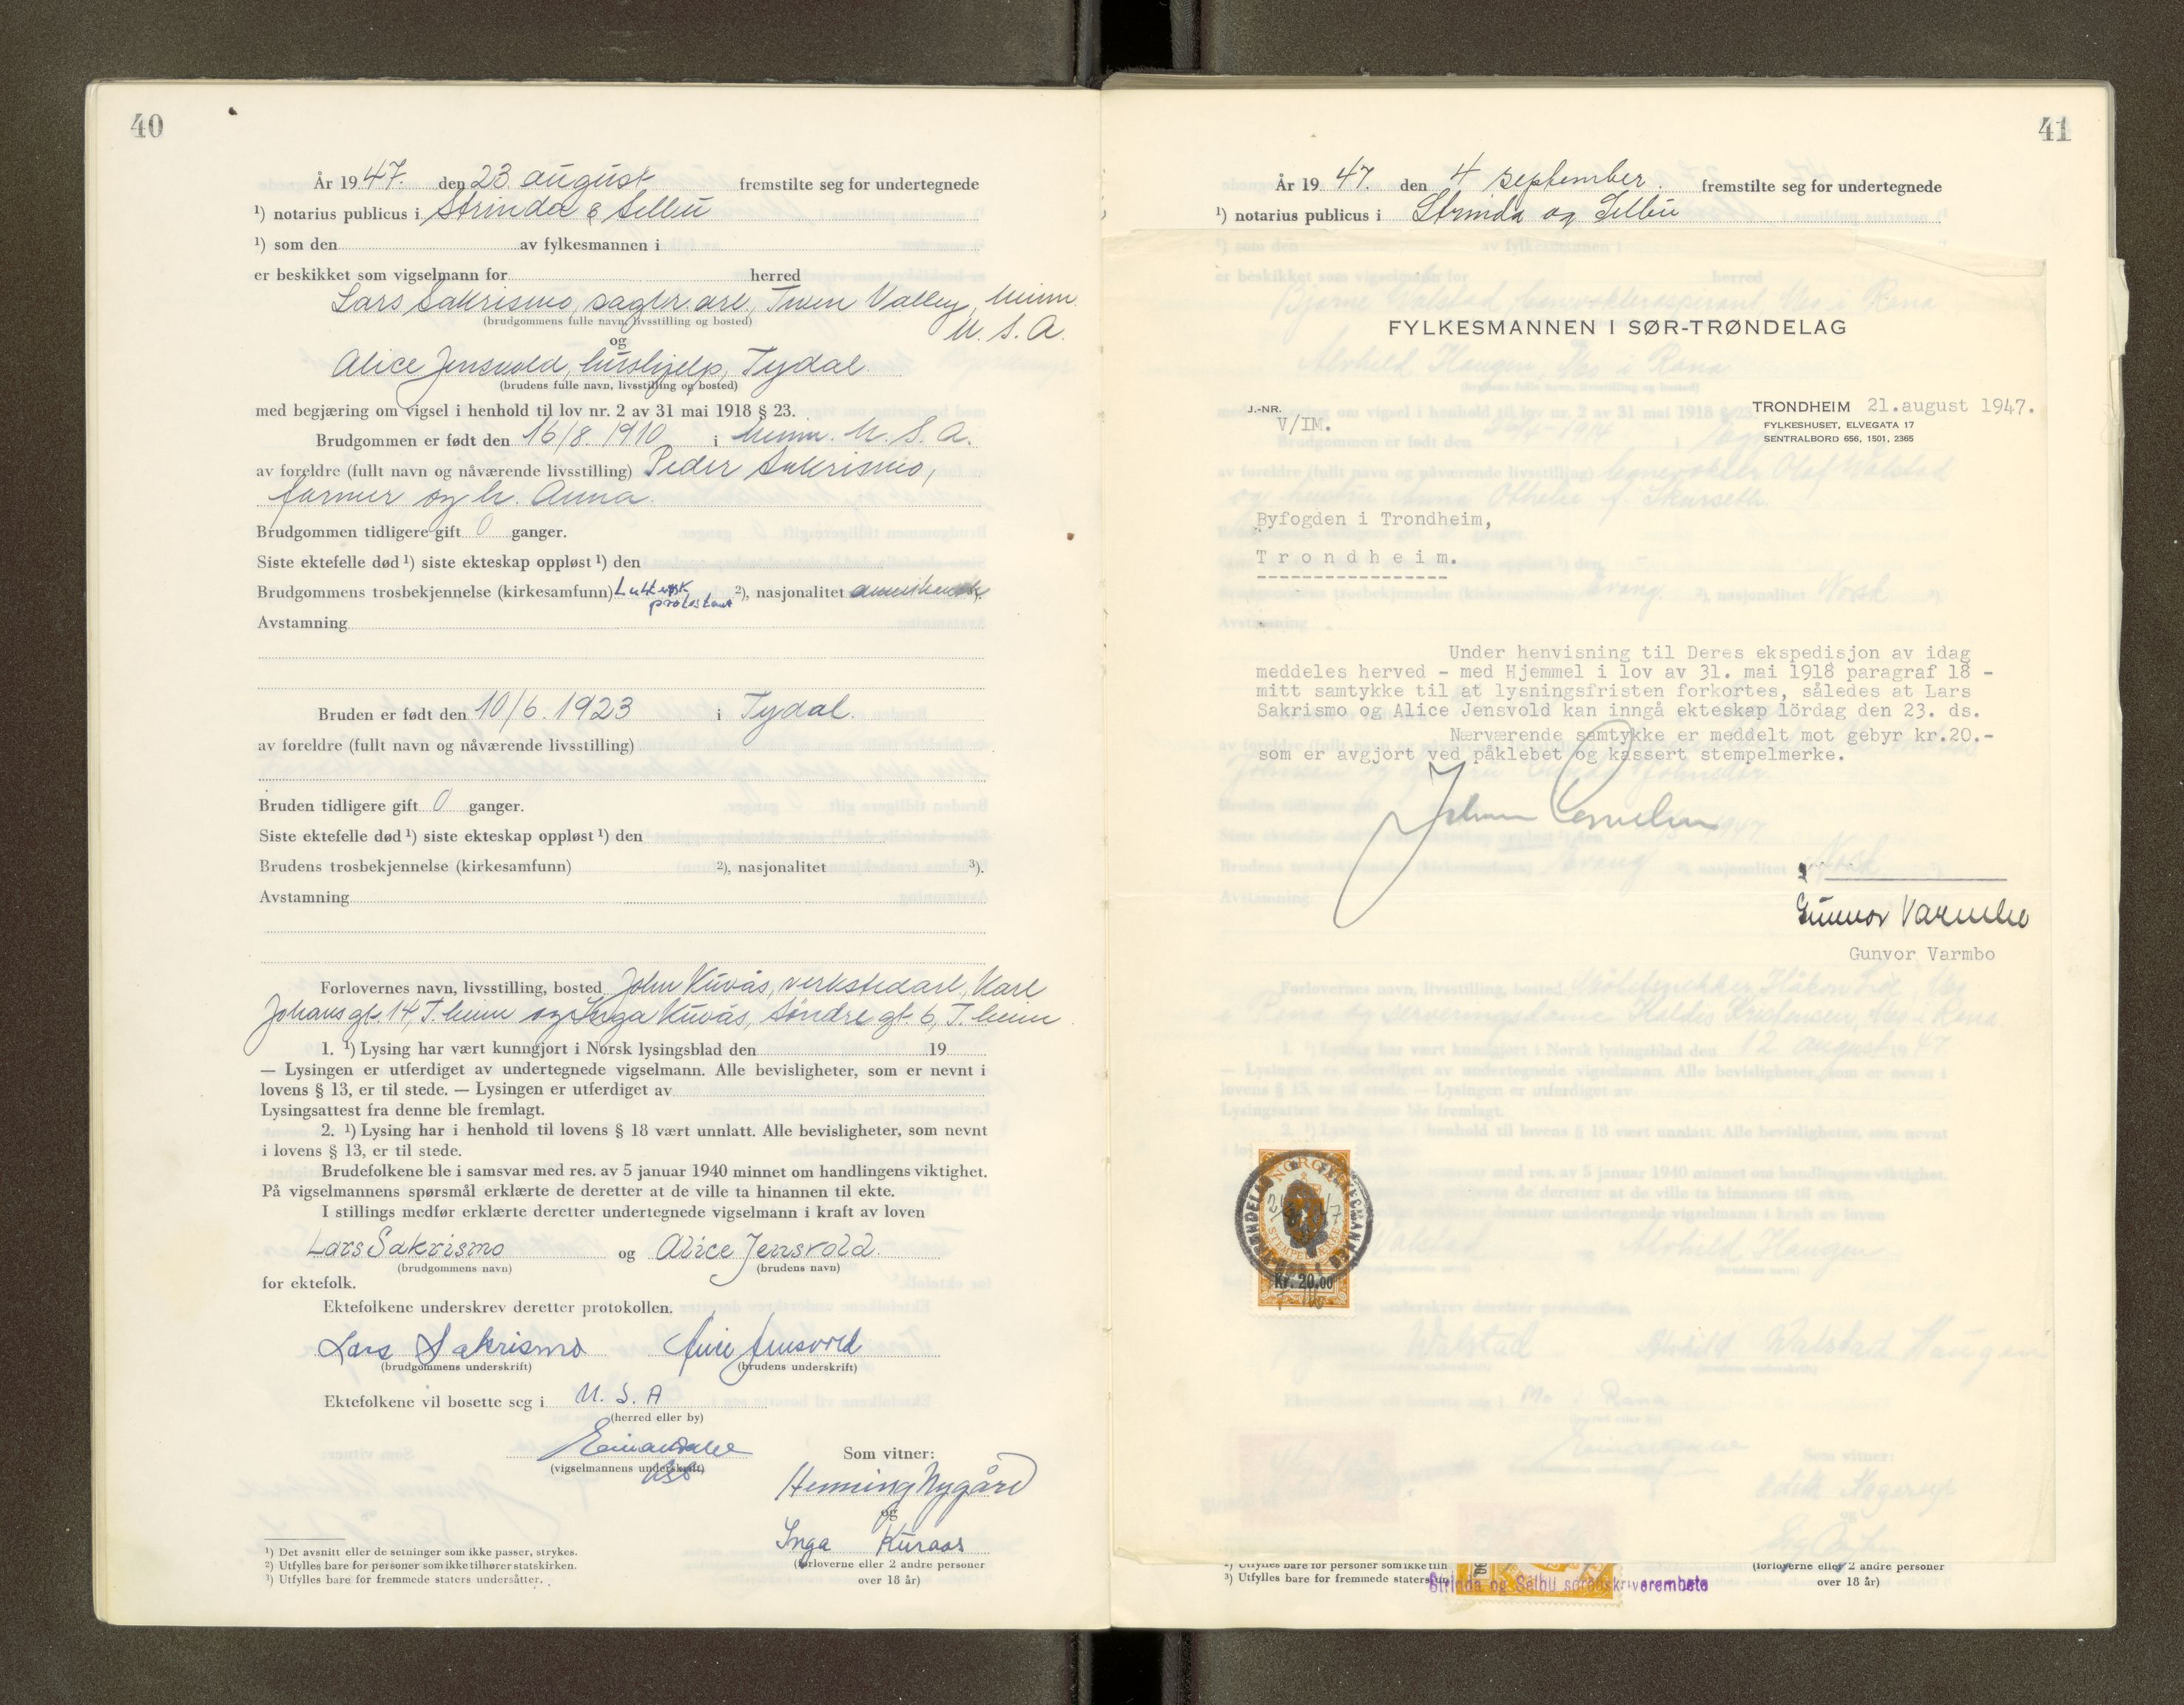 40
År 1947. den 23. august fremstilte seg for undertegnede
¹) notarius publicus i Strinda & Selbu
¹) som den av fylkesmannen i
er beskikket som vigselmann for herred
Lars Sakrismo, sagbr.arb., Twin Valley, Minn.
U. S. A.
(brudgommens fulle navn, livsstilling og bosted)
og
Alice Jensvold, hushjelp, Tydal.
(brudens fulle navn, livsstilling og bosted)
med begjæring om vigsel i henhold til lov nr. 2 av 31 mai 1918 § 23.
Brudgommen er født den 16/8. 1910 i Minn. U. S. A.
av foreldre (fullt navn og nåværende livsstilling) Peder Sakrismo,
farmer og h. Anna.
Brudgommen tidligere gift 0 ganger.
Siste ektefelle død ¹) siste ekteskap oppløst ¹) den
Brudgommens trosbekjennelse (kirkesamfunn) Luthersk protestant ²), nasjonalitet amerikansk
Avstamning
Bruden er født den 10/6. 1923 i Tydal.
av foreldre (fullt navn og nåværende livsstilling)
Bruden tidligere gift 0 ganger.
Siste ektefelle død ¹) siste ekteskap oppløst ¹) den
Brudens trosbekjennelse (kirkesamfunn) ²), nasjonalitet ³).
Avstamning
Forlovernes navn, livsstilling, bosted John Kuvås, verkstedarb., Karl
Johans gt. 14, T.heim og Inga Kuvås, Søndre gt. 6, T.heim
1. ¹) Lysing har vært kunngjort i Norsk lysingsblad den 19
— Lysingen er utferdiget av undertegnede vigselmann. Alle bevisligheter, som er nevnt i
lovens § 13, er til stede. — Lysingen er utferdiget av
Lysingsattest fra denne ble fremlagt.
2. ¹) Lysing har i henhold til lovens § 18 vært unnlatt. Alle bevisligheter, som nevnt
i lovens § 13, er til stede.
Brudefolkene ble i samsvar med res. av 5 januar 1940 minnet om handlingens viktighet.
På vigselmannens spørsmål erklærte de deretter at de ville ta hinannen til ekte.
I stillings medfør erklærte deretter undertegnede vigselmann i kraft av loven
Lars Sakrismo og Alice Jensvold.
(brudgommens navn) (brudens navn)
for ektefolk.
Ektefolkene underskrev deretter protokollen.
Lars Sakrismo Alice Jensvold
(brudgommens underskrift) (brudens underskrift)
Ektefolkene vil bosette seg i U. S. A
(herred eller by)
(vigselmannens underskrift)
Som vitner:
Henning Nygård
og
Inga Kuraas
(forloverne eller 2 andre personer
over 18 år)
¹) Det avsnitt eller de setninger som ikke passer, strykes.
²) Utfylles bare for personer som ikke tilhører statskirken.
³) Utfylles bare for fremmede staters undersåtter.
41
År 1947. den 4 september. fremstilte seg for undertegnede
¹) notarius publicus i Strinda og Selbu
FYLKESMANNEN I SØR-TRØNDELAG
J.-NR.
V/IM.
TRONDHEIM 21.august 1947.
FYLKESHUSET, ELVEGATA 17
SENTRALBORD 656, 1501, 2365
Byfogden i Trondheim,
Trondheim.
Under henvisning til Deres ekspedisjon av idag
meddeles herved - med Hjemmel i lov av 31. mai 1918 paragraf 18 -
mitt samtykke til at lysningsfristen forkortes, således at Lars
Sakrismo og Alice Jensvold kan inngå ekteskap lördag den 23. ds.
Nærværende samtykke er meddelt mot gebyr kr.20.-
som er avgjort ved påklebet og kassert stempelmerke.
Gunvor Varmbo
Gunvor Varmbo
Kr. 20.00
²) Utfylles bare for personer som ikke tilh
³) Utfylles bare for fremmede staters un
Strinda og Selbu sorenskriverembete
(forloverne eller 2 andre personer
over 18 år)